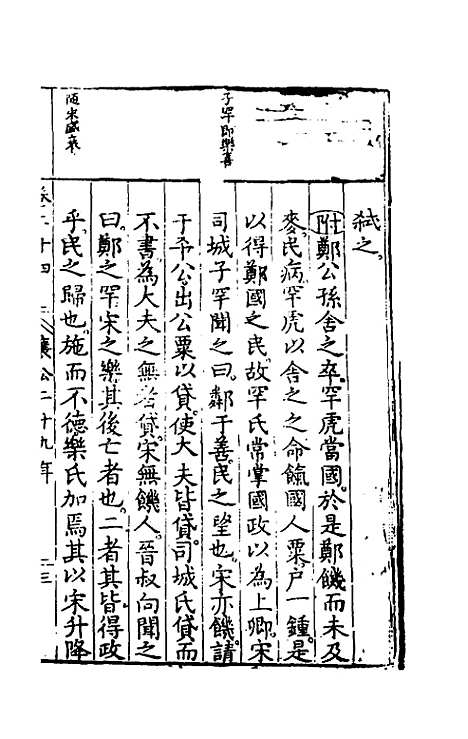 弑之
附鄭公孫舍之卒罕虎當國於是鄭饑而未及
麥民病罕虎以舍之之命餼國人粟戸一鍾是
以得鄭國之民故罕氏常掌國政以為上卿宋
司城子罕聞之曰鄰于善民之望也宋亦饑請
于平公出公粟以貸使大夫皆貸司城氏貸而
不書為大夫之無者貸宋無饑人晉叔向聞之
曰鄭之罕宋之樂其後亡者也二者其皆得政
乎民之歸也施而不德樂氏加焉其以宋升降
子罕即樂喜
隨宋盛衰
卷二十四 襄公二十九年 二三